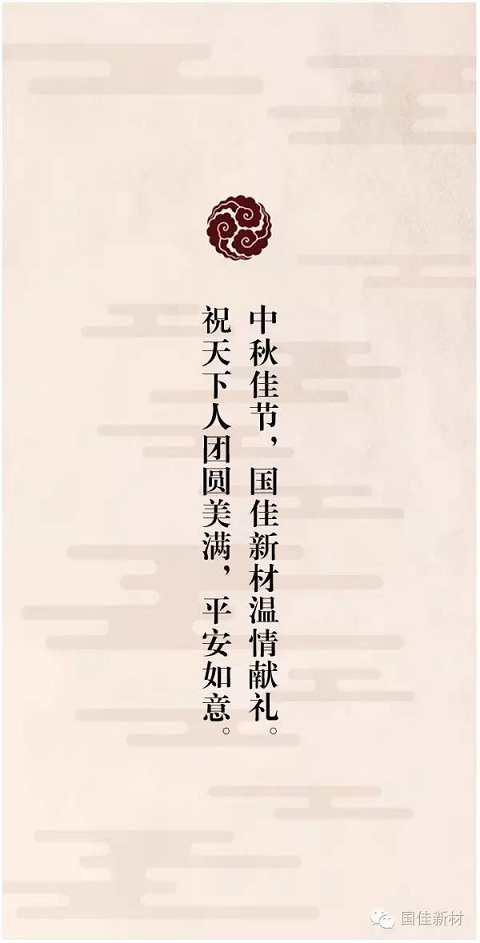 中秋佳节，国佳新材温情献礼。
祝天下人团圆美满，平安如意。
国佳新材